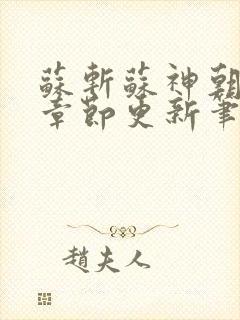 蘇斬蘇神朝
章節更新筆
趙夫人